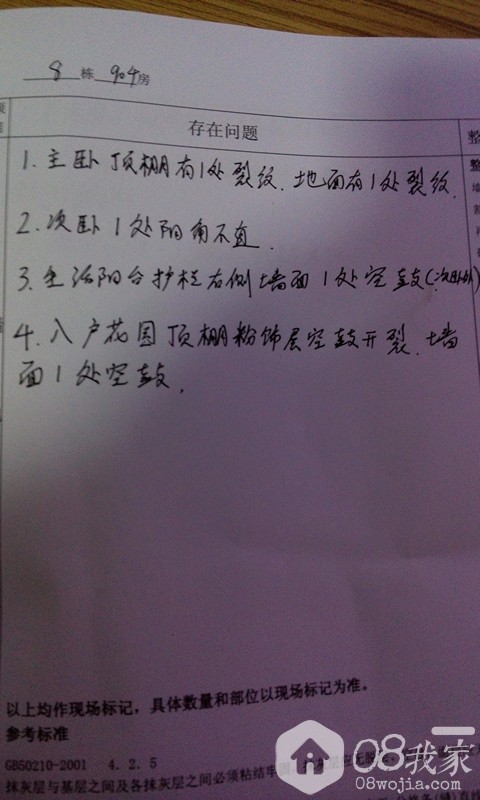 8栋 904房
存在问题
整
1.主卧顶棚有1处裂纹.地面有1处裂纹.
2.次卧1处阳角不直.
3.生活阳台护栏右侧墙面1处空鼓(次卧外)
4.入户花园顶棚粉饰层空鼓开裂.墙
面1处空鼓.
以上均作现场标记，具体数量和部位以现场标记为准。
参考标准
GB50210-2001 4.2.5
抹灰层与基层之间及各抹灰层之间必须粘结牢固
08我家
08wojia.com